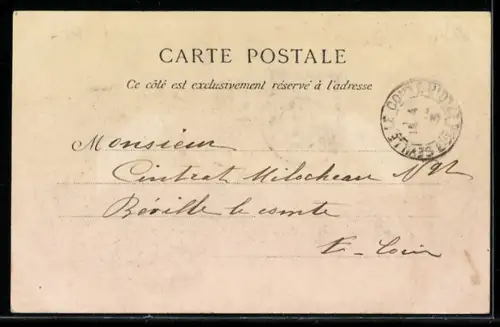 CARTE POSTALE
Ce côté est exclusivement réservé à l'adresse
Monsieur
Milocheau
Béville le comte
E. Loir